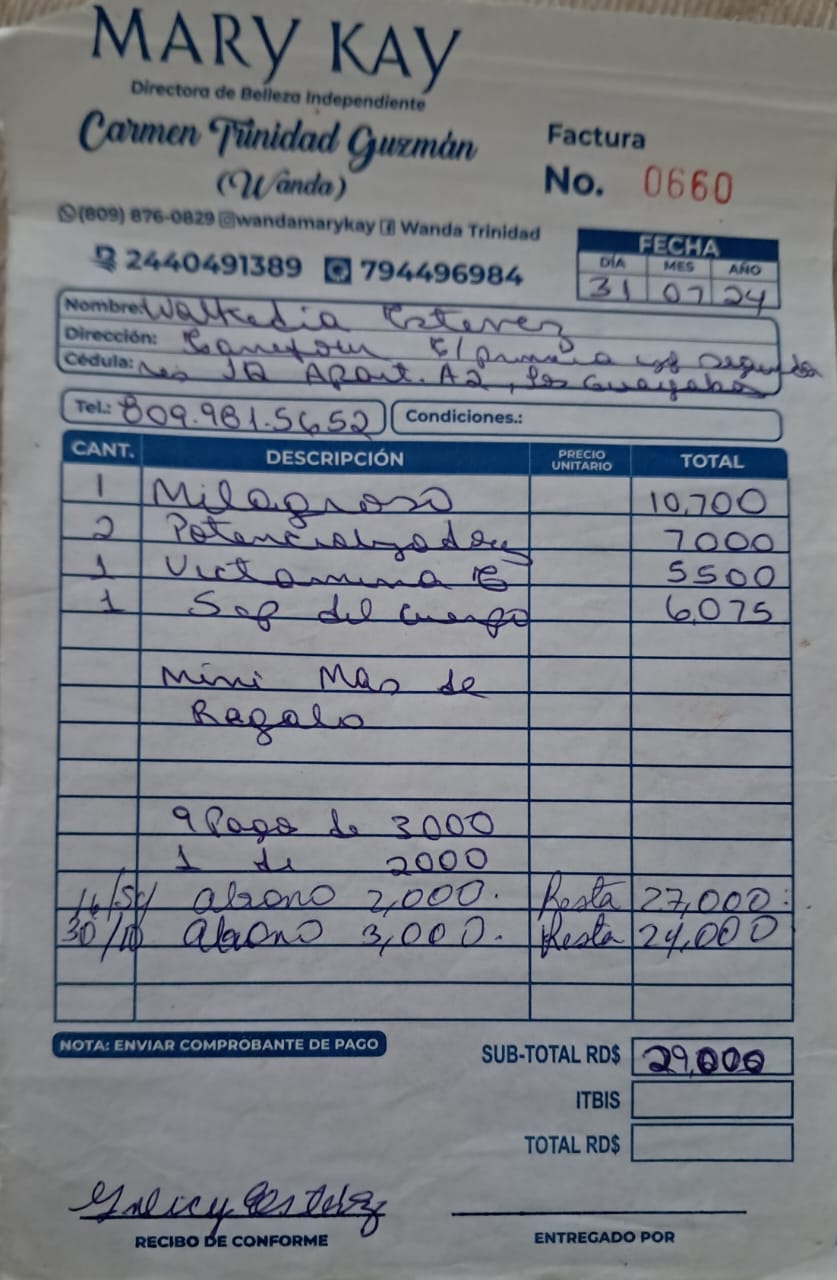 MARY KAY
Directora de Belleza Independiente
Carmen Trinidad Guzmán
(Wanda)
Factura
No. 0660
(809) 876-0829 wandamarykay Wanda Trinidad
2440491389 794496984
FECHA
DÍA MES AÑO
31 07 24
Nombre: Walkedia Estevez
Dirección: E/ primera
Cédula: Apart. A2, Los Guayabos
Tel.: 809.981.5652 Condiciones.:
CANT. DESCRIPCIÓN PRECIO UNITARIO TOTAL
1 Milagroso 10,700
2 7000
1 Victamina C 5500
1 del cuerpo 6,075
Mini Mas de
Ragalo
9 Pago de 3000
1 de 2000
abono 2,000. Resta 27,000.
30/10 abono 3,000. Resta 24,000
NOTA: ENVIAR COMPROBANTE DE PAGO
SUB-TOTAL RD$ 29,000
ITBIS
TOTAL RD$
RECIBO DE CONFORME
ENTREGADO POR